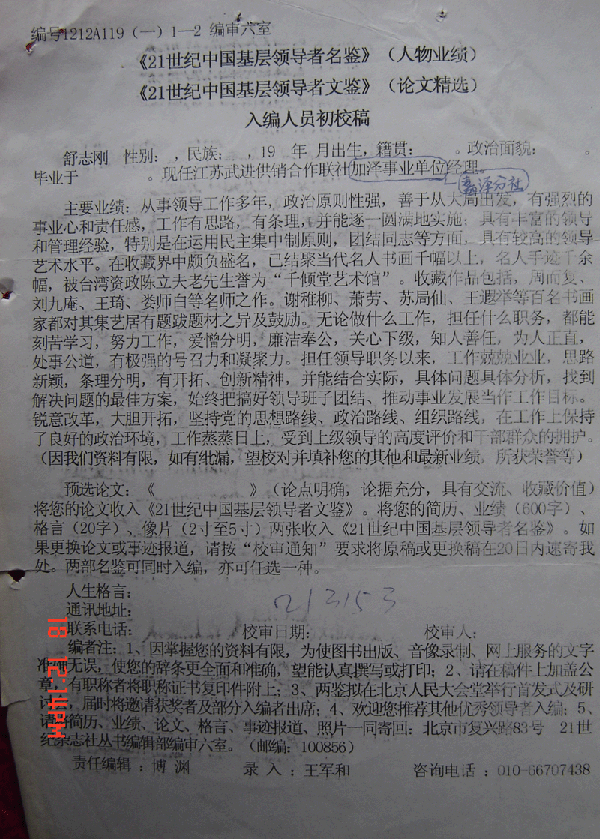 编号1212A119（一）1—2 编审六室
《21世纪中国基层领导者名鉴》（人物业绩）
《21世纪中国基层领导者文鉴》（论文精选）
入编人员初校稿
舒志刚 性别: ,民族: ,19 年 月出生,籍贯: 。政治面貌: 。
毕业于 。现任江苏武进供销合作联社加泽事业单位经理。
分社
主要业绩: 从事领导工作多年，政治原则性强，善于从大局出发，有强烈的
事业心和责任感，工作有思路，有条理，并能逐一圆满地实施；具有丰富的领导
和管理经验，特别是在运用民主集中制原则，团结同志等方面，具有较高的领导
艺术水平。在收藏界中颇负盛名，已结聚当代名人书画千幅以上，名人手迹千余
幅，被台湾资政陈立夫老先生誉为“千倾堂艺术馆”。收藏作品包括，周而复、
刘九庵、王琦、娄师白等名师之作。谢稚柳、萧劳、苏局仙、王遐举等百名书画
家都对其集艺居有题跋题材之异及鼓励。无论做什么工作，担任什么职务，都能
刻苦学习，努力工作，爱憎分明，廉洁奉公，关心下级，知人善任，为人正直，
处事公道，有极强的号召力和凝聚力。担任领导职务以来，工作兢兢业业，思路
新颖，条理分明，有开拓、创新精神，并能结合实际，具体问题具体分析，找到
解决问题的最佳方案，始终把搞好领导班子团结、推动事业发展当作工作目标。
锐意改革，大胆开拓，坚持党的思想路线、政治路线、组织路线，在工作上保持
了良好的政治环境，工作蒸蒸日上，受到上级领导的高度评价和干部群众的拥护。
（因我们资料有限，如有纰漏，望校对并填补您的其他和最新业绩，所获荣誉等）
预选论文:《 》（论点明确，论据充分，具有交流、收藏价值）
将您的论文收入《21世纪中国基层领导者文鉴》。将您的简历、业绩（600字）、
格言（20字）、像片（2寸至5寸）两张收入《21世纪中国基层领导者名鉴》。如
果更换论文或事迹报道，请按“校审通知”要求将原稿或更换稿在20日内邮寄我
处。两部名鉴可同时入编，亦可任选一种。
人生格言:
通讯地址: 213153
联系电话: 校审日期: 校审人:
编者注: 1、因掌握您的资料有限，为使图书出版、音像录制、网上服务的文字
准确无误，使您的辞条更全面和准确，望能认真撰写或打印；2、请在稿件上加盖公
章，有职称者将职称证书复印件附上；3、两鉴拟在北京人民大会堂举行首发式及研
讨会，届时将邀请获奖者及部分入编者出席；4、欢迎您推荐其他优秀领导者入编；5、
请将简历、业绩、论文、格言、事迹报道、照片一同寄回: 北京市复兴路83号 21世
纪杂志社丛书编辑部编审六室。（邮编: 100856）
责任编辑: 博渊 录入: 王军和 咨询电话: 010-66707438